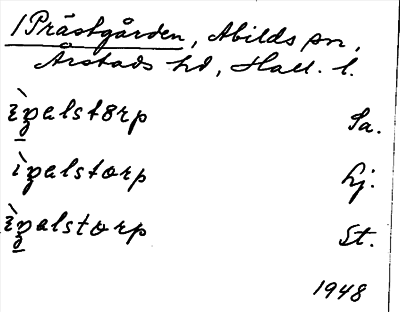 1 Prästgården, Abilds sn,
Årstads hd, Hall. l.
ı̀ʒalstɵrp Sa.
ìʒalstorp Lj.
ı̀ʒalstorp St.
1948